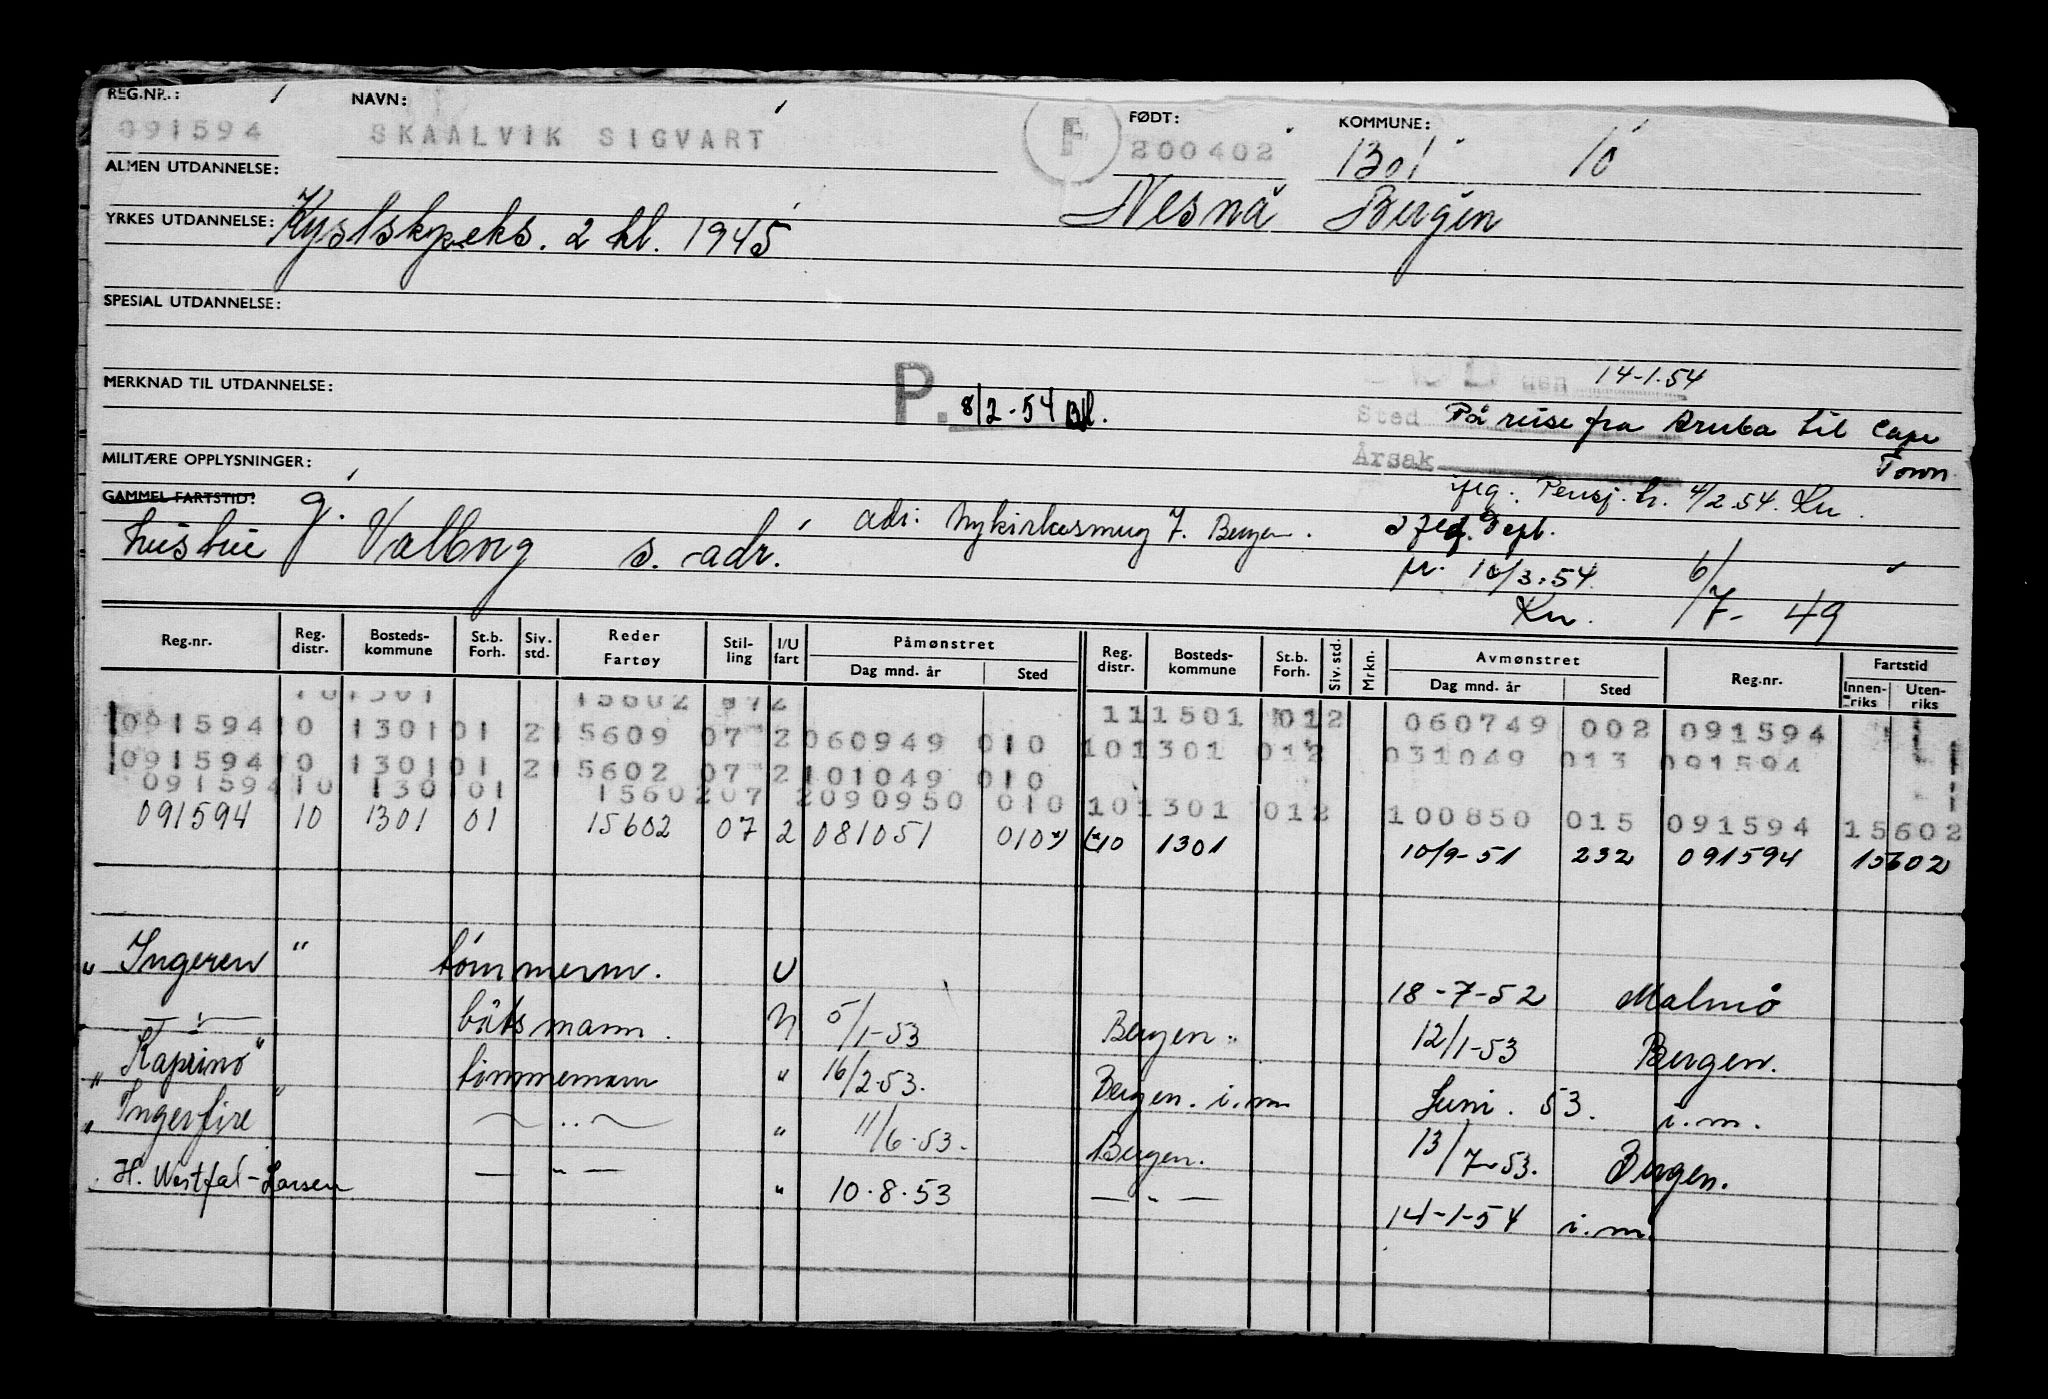 REG.NR.: NAVN: FØDT: KOMMUNE:
091594 SKAALVIK SIGVART F 200402 1301 10
ALMEN UTDANNELSE: Nesnå Bergen
YRKES UTDANNELSE: Kystskp.eks. 2 kl. 1945
SPESIAL UTDANNELSE:
MERKNAD TIL UTDANNELSE: P. 8/2-54 14-1-54
Sted På reise fra Aruba til Cape
MILITÆRE OPPLYSNINGER: Årsak Town
GAMMEL FARTSTID: Pensj. 4/2 54. Kn.
hustru g. Valborg s. adr. adr: Nykirkesmug 7. Bergen.
10/3.54. 6/7-49
Kn.
Reg.nr. Reg. distr. Bosteds-kommune St.b. Forh. Siv. std. Reder Fartøy Stil-ling I/U fart Påmønstret Dag mnd. år Sted Reg. distr. Bosteds-kommune St.b. Forh. Siv. std. Mrkn. Avmønstret Dag mnd. år Sted Reg.nr. Fartstid Innen-riks Uten-riks
101301 15602 072 111501 012 060749 002 091594
091594 10 1301 01 2 15609 07 2 060949 010 101301 012 031049 013 091594
091594 10 1301 01 2 15602 07 2 101049 010
091594 10 1301 01 15602 07 2 090950 010 101301 012 100850 015 091594 15602
091594 10 1301 01 15602 07 2 081051 010 *) (*10 1301 10/9-51 232 091594 15602
" Ingeren " tömmerm. U 18-7-52 Malmö
— " — båtsmann. U 5/1-53 Bergen. 12/1-53 Bergen.
" Kaprino " tömmermann " 16/2-53. Bergen. i.m. Juni. 53. i.m.
" Ingerfire " — " — " 11/6-53. Bergen. 13/7-53. Bergen.
H. Westfal-Larsen — " — " 10.8.53 — " — 14-1-54 i.m.